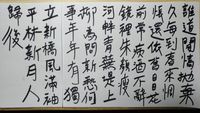 誰道閒情拋棄
久每到春來惆
悵還依舊日日花
前常病酒不辭
鏡裡朱顏瘦
河畔青蕪上
柳為問新愁何
事年年有獨
立橋風滿袖
平林新月人
歸後